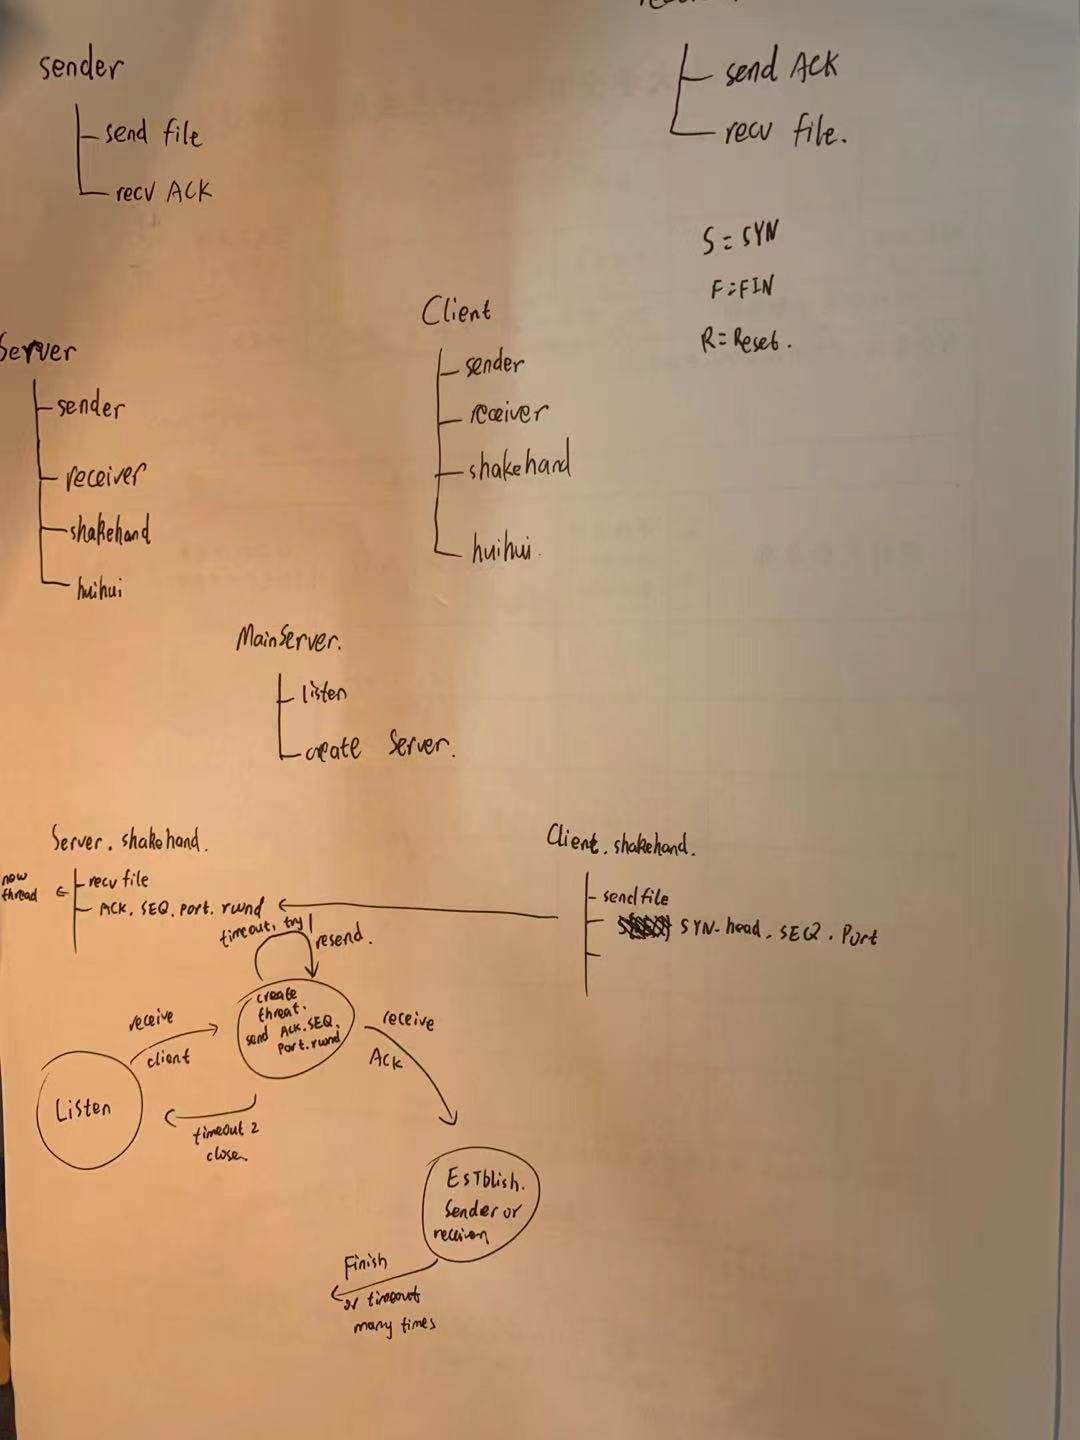 sender
send file
recv ACK
send ACK
recv file.
S = SYN
F = FIN
R = Reset.
Server
sender
receiver
shakehand
huihui
Client
sender
receiver
shakehand
huihui.
MainServer.
listen
create Server.
Server. shakehand.
now
thread
recv file
ACK. SEQ. port. rwnd
Client. shakehand.
send file
SYN-head. SEQ. Port
timeout, try 1
resend.
create
threat.
send ACK. SEQ.
Port. rwnd
receive
client
Listen
timeout 2
close
receive
ACK
EsTblish.
Sender or
Finish
or timeout
many times